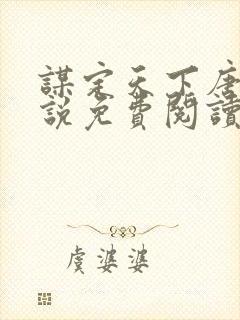 謀定天下唐
說免費閱讀
虞婆婆